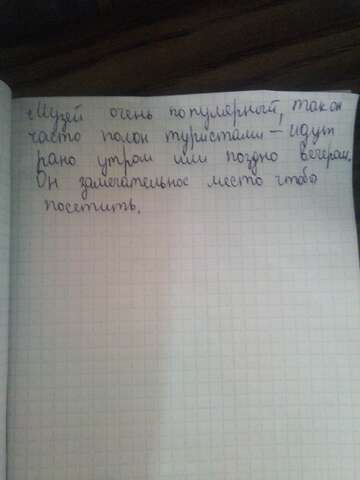 Музей очень популярный, так он
часто полон туристами – идут
рано утром или поздно вечером.
Он замечательное место чтоба
посетить.